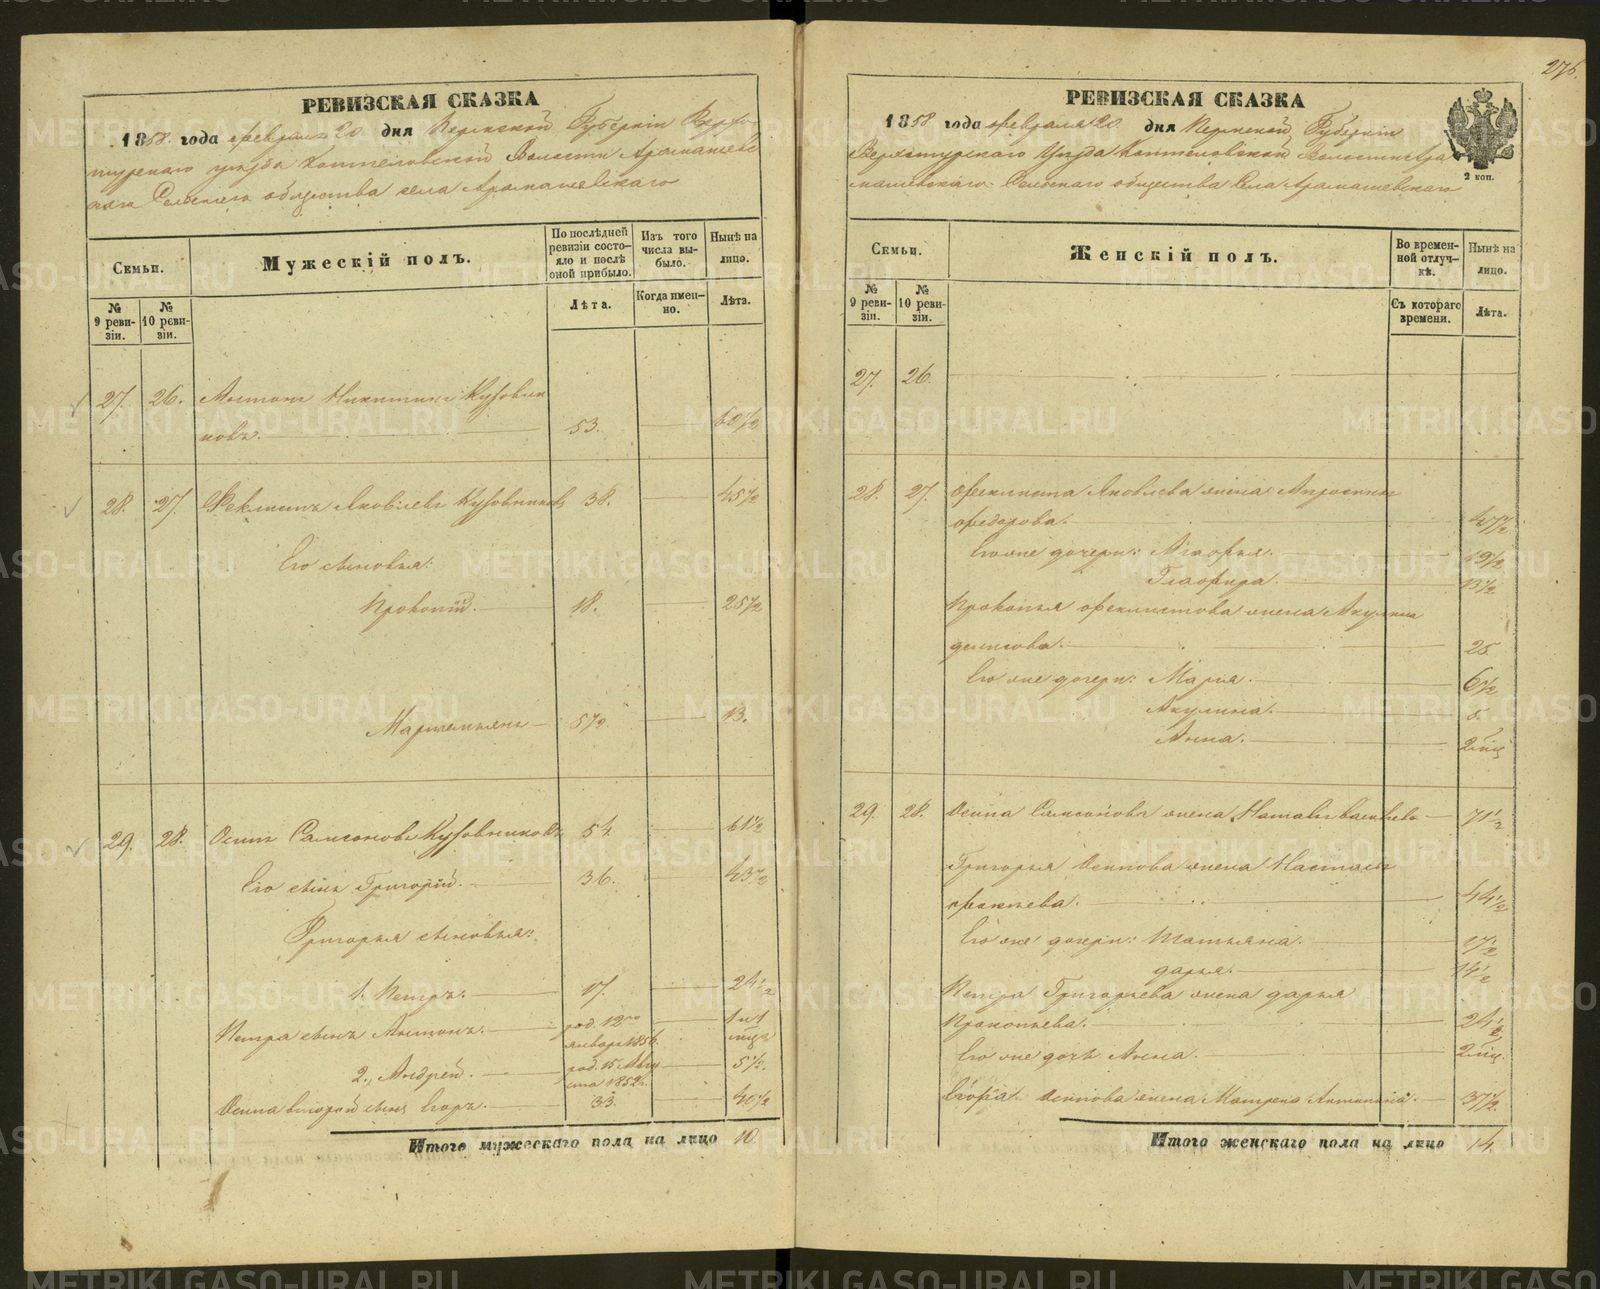 275.
РЕВИЗСКАЯ СКАЗКА
1858. года февраля 20 дня Пермской Губерніи Верхо-
турскаго уѣзда Коптеловской Волости Арамашевс
каго Сельскаго общества села Арамашевскаго
Семьи.
Мужескій полъ.
По послѣдней ревизіи состо-яло и послѣ оной прибыло.
Изъ того числа вы-было.
Нынѣ на лицо.
№ 9 реви-зіи.
№ 10 реви-зіи.
Лѣта.
Когда имен-но.
Лѣта.
27. 26. Антонъ Никитинъ Кузовни
ковъ. 53. 60 1/2
28. 27. Феклистъ Яковлевъ Кузовниковъ 38. 45 1/2
Его сыновья:
Прокопій. 18. 25 1/2
Мартемьянъ 5 1/2 13.
29. 28. Осипъ Самсоновъ Кузовниковъ 54. 61 1/2
Его сынъ Григорій. 36. 43 1/2
Григорья сыновья:
1. Петръ. 17. 24 1/2
Петра сынъ Антонъ. род. 12го января 1856. 1 и 1 мѣсц
2., Андрей. род. 15 Авгу ста 1852г. 5 1/2.
Осипа второй сынъ Егоръ. 33. 40 1/2
Итого мужескаго пола на лицо 10.
РЕВИЗСКАЯ СКАЗКА
1858 года февраля 20 дня Пермской Губерніи
Верхотурскаго Уѣзда Коптеловской Волости Ара
машевскаго Сельскаго общества Села Арамашевскаго
2 коп.
Семьи.
Женскій полъ.
Во времен-ной отлуч-кѣ.
Нынѣ на лицо.
№ 9 реви-зіи.
№ 10 реви-зіи.
Съ котораго времени.
Лѣта.
27. 26.
28. 27. Феклиста Яковлева жена Апросинья
Федорова. 47 1/2
Его же дочери: Агафья. 19 1/2
Глафира. 13 1/2
Прокопья Феклистова жена Акулина
денисова. 25
Его же дочери: Марья. 6 1/2
Акулина. 5.
Анна. 2 мѣц
29. 28. Осипа Самсонова жена Наталья 71 1/2
Григорья Осипова жена Настасья
44 1/2
Его же дочери: Татьяна. 17 1/2
дарья. 14 1/2
Петра Григорьева жена дарья
Прокопьева. 24 1/2
Его же дочь Анна. 2 мѣц.
Егора Осипова жена Матрена 37 1/2
Итого женскаго пола на лицо 14.
METRIKI.GASO-URAL.RU